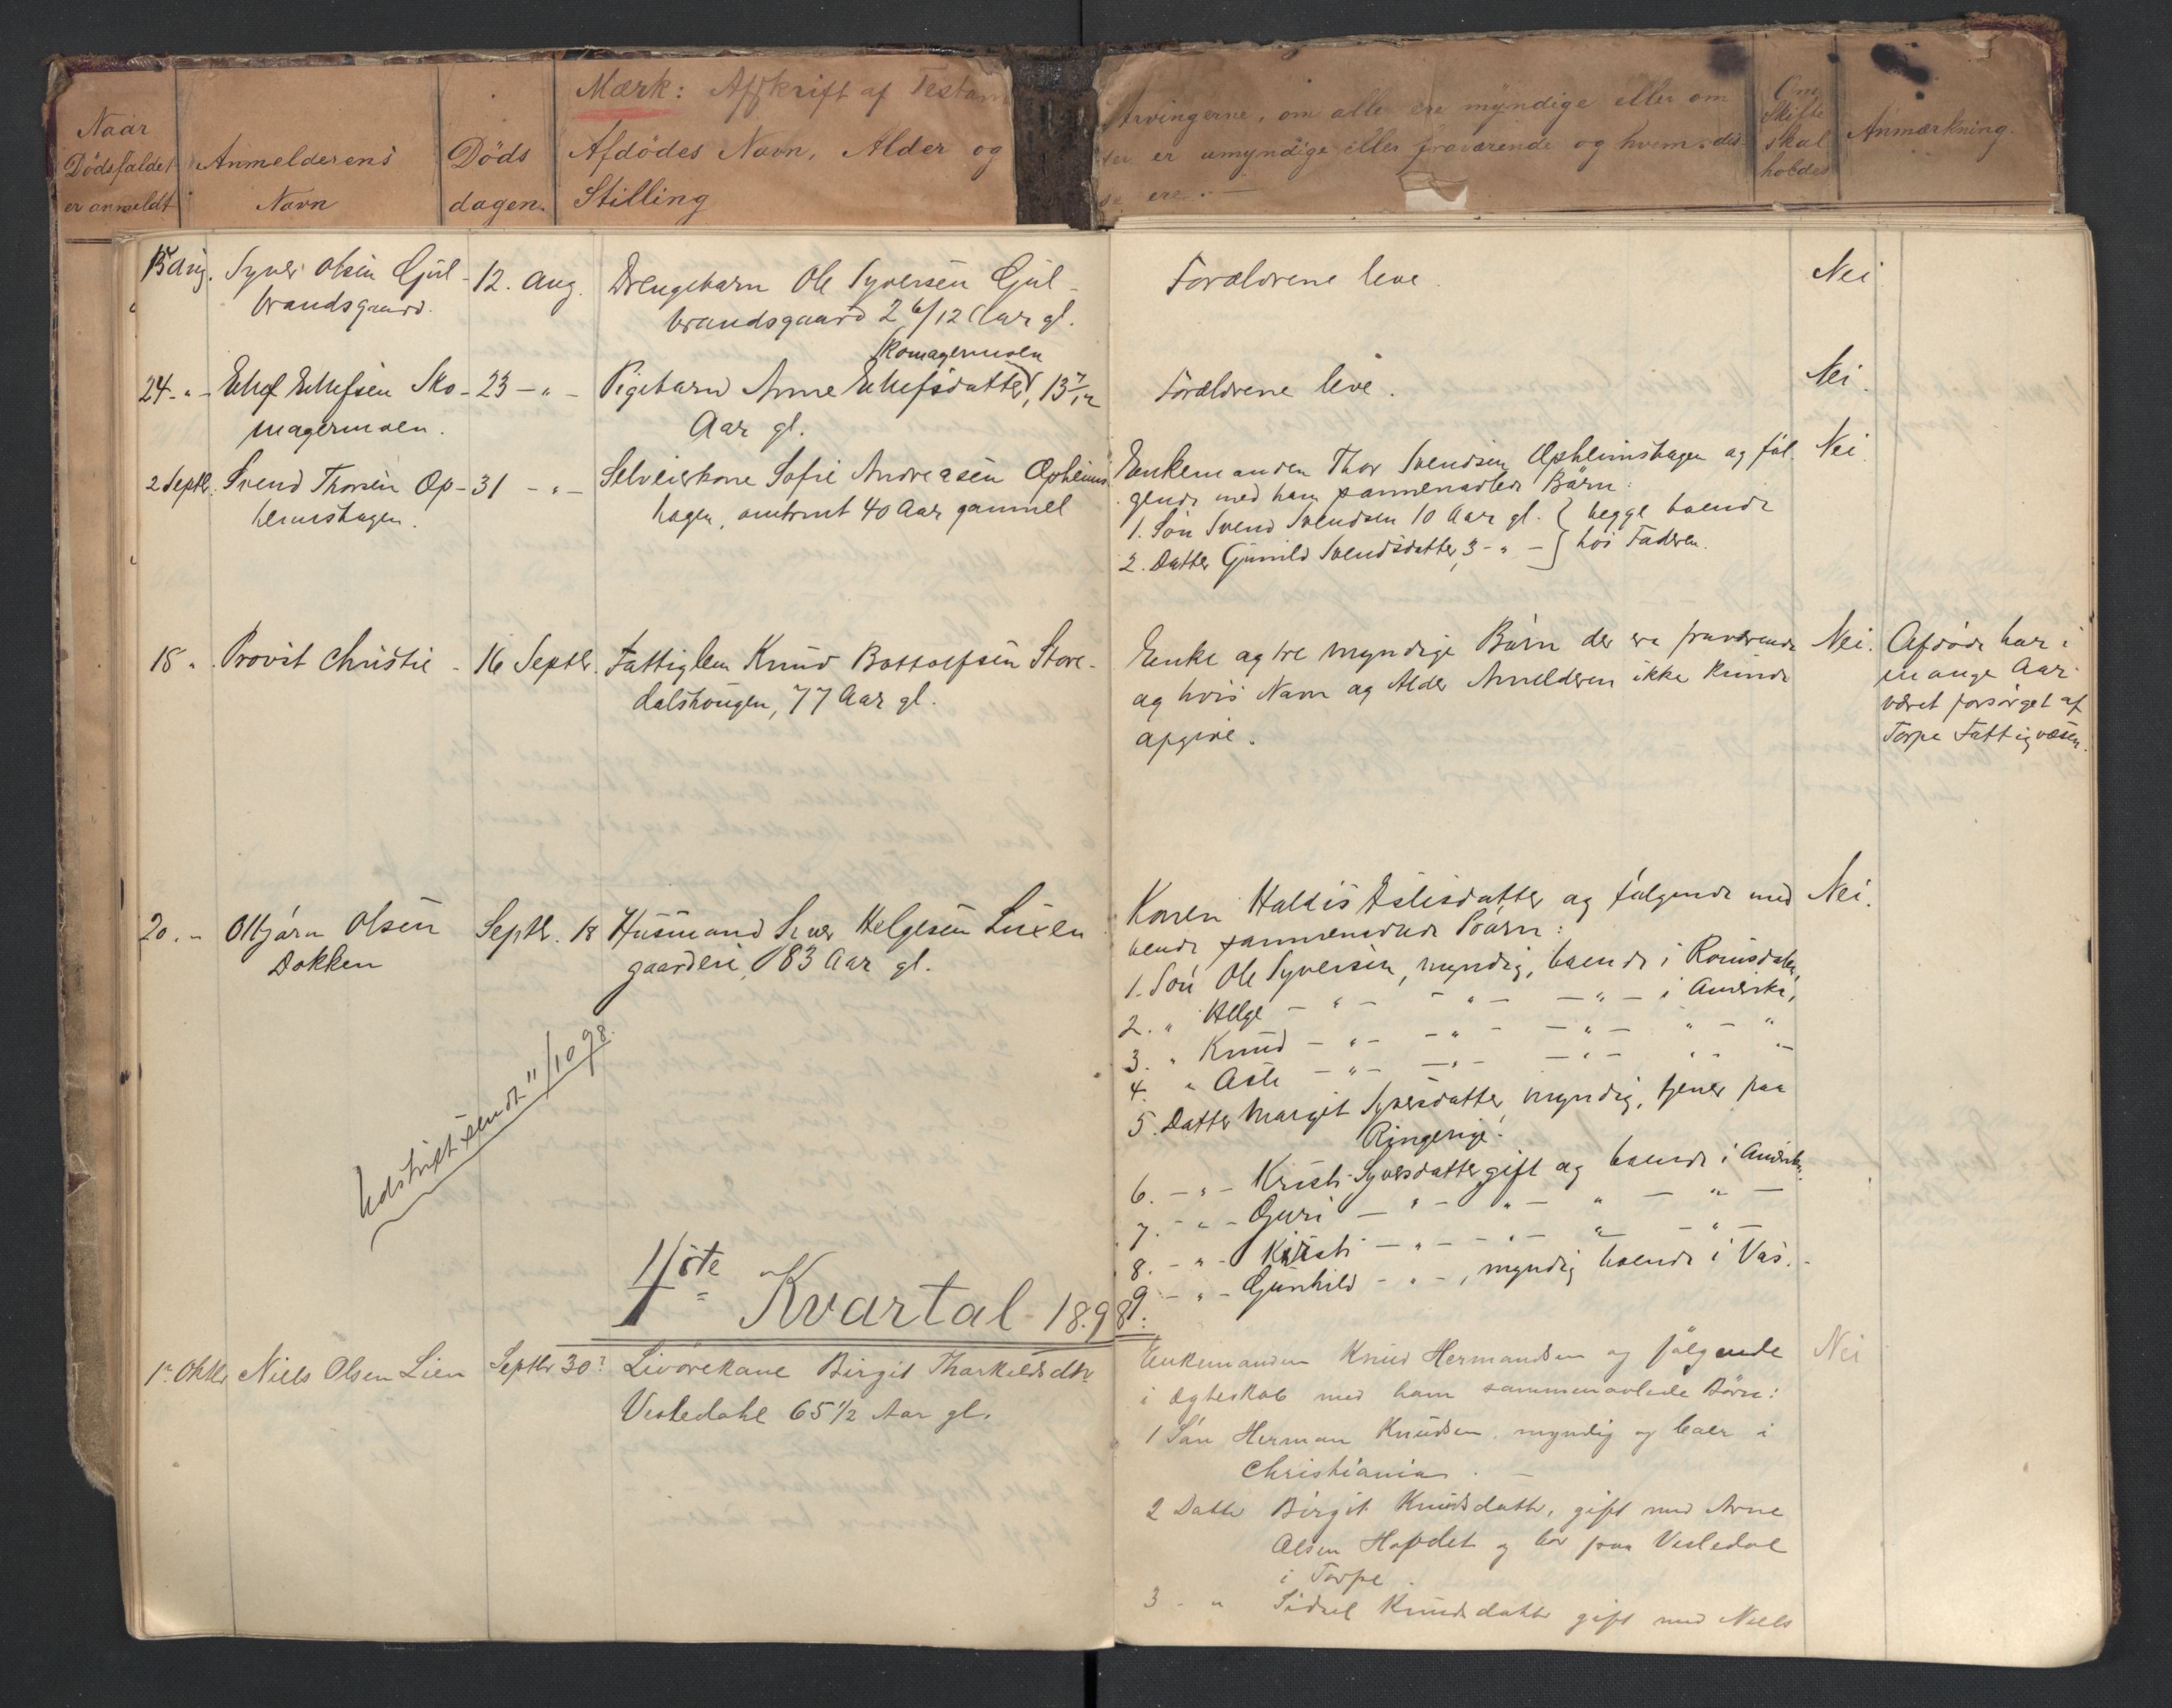 Naar
Dödsfaldet
er anmeldt
Anmelderens
Navn
Döds
dagen.
Mærk: Afskrift af Testam
Afdödes Navn, Alder og
Stilling
Arvingerne, om alle ere myndige eller om
der er umyndige eller fraværende og hvem dis-
se ere.
Om
Skifte
skal
holdes
Anmærkning.
15 Aug.
Syver Olsen Gjul-
brandsgaard.
12. Aug.
Drengebarn Ole Syversen Gjul-
brandsgaard 2 6/12 Aar gl.
Forældrene leve.
Nei
24 - " -
Ellef Ellefsen Sko-
magermoen.
23 - " -
Skomagermoen
Pigebarn Anne Ellefsdatter, 13 7/12
Aar gl.
Forældrene leve.
Nei.
2 Septbr.
Svend Thorsen Op-
heimshagen.
31 - " -
Selveierkone Sofie Andreasen Opheims
hagen, omtrent 40 Aar gammel
Enkemanden Thor Svendsen Opheimshagen og føl-
gende med ham sammenavlede Børn:
1. Søn Svend Svendsen 10 Aar gl. } begge boende
2. Datter Gunild Svendsdatter, 3 - " - } hos Faderen.
Nei
18 "
Provst Christie -
16 Septbr.
Fattiglem Knud Bottolfsen Store-
dalshougen, 77 Aar gl.
Enke og tre myndige Børn der ere fraværende
og hvis Navn og Alder Anmelderen ikke kunde
opgive.
Nei.
Afdøde har i
mange Aar
været forsørget af
Torpe Fattigvæsen.
20. "
Asbjørn Olsen
Dokken
Septbr. 18
Husmand Syver Helgesen Luxen
gaardeie, 83 Aar gl.
Konen Haldis Aslesdatter og følgende med
hende sammenavlede Børn:
1. Søn Ole Syversen, myndig, boende i Romsdalen,
2. " Helge - " - - " - - " - i Amerika,
3. " Knud - " - - " - - " - " - "
4. " Asle - " - - " - - " - " - "
5. Datter Margit Syversdatter, myndig, tjener paa
Ringerige.
6. - " - Kristi Syversdatter gift og boende i Amerika.
7. - " - Guri - " - " - " - " -
8. - " - Kirsti - " - - " - " - " -
9 - " - Gunhild - " -, myndig boende i Vas.
Nei.
Udskrift sendt 11/10 98.
4de Kvartal 1898:
1. Oktbr
Niels Olsen Lien
Septbr 30.
Livørekone Birgit Tharkildsdtr
Vesledahl 65 1/2 Aar gl.
Enkemanden Knud Hermandsen og følgende
i ægteskab med ham sammenavlede Børn:
1 Søn Herman Knudsen, myndig og boer i
Christiania. -
2 Datter Birgit Knudsdatter, gift med Arne
Olsen Hovdet og bor paa Vesledal
i Torpe.
3 - " Sidsel Knudsdatter gift med Niels
Nei